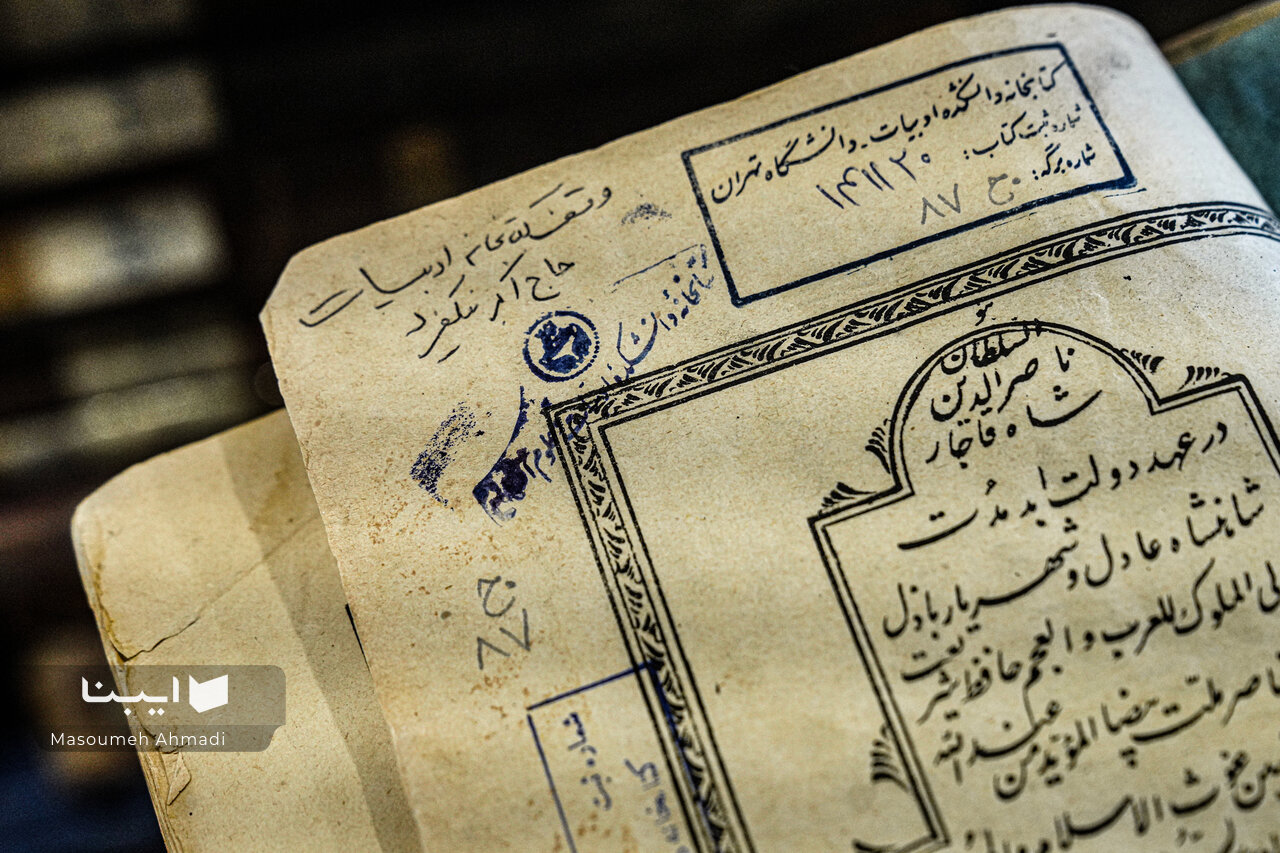 کتابخانه دانشکده ادبیات - دانشگاه تهران
شماره ثبت کتاب: ۱۴۱۱۲۰
شماره برگه: ج ۸۷
وقف کتابخانه ادبیات
حاج اکبر نیکفرد
کتابخانهٔ دانشکدهٔ
علوم
ج
۸۷
شماره ثبت
السلطان
ناصرالدین
شاه قاجار
در عهد دولت ابد مدت
شاهنشاه عادل و شهریار باذل
الملوک للعرب و العجم حافظ شریعت
ناصر ملت بیضا المؤید من عند الله
غوث الاسلام و
ایبنا
Masoumeh Ahmadi